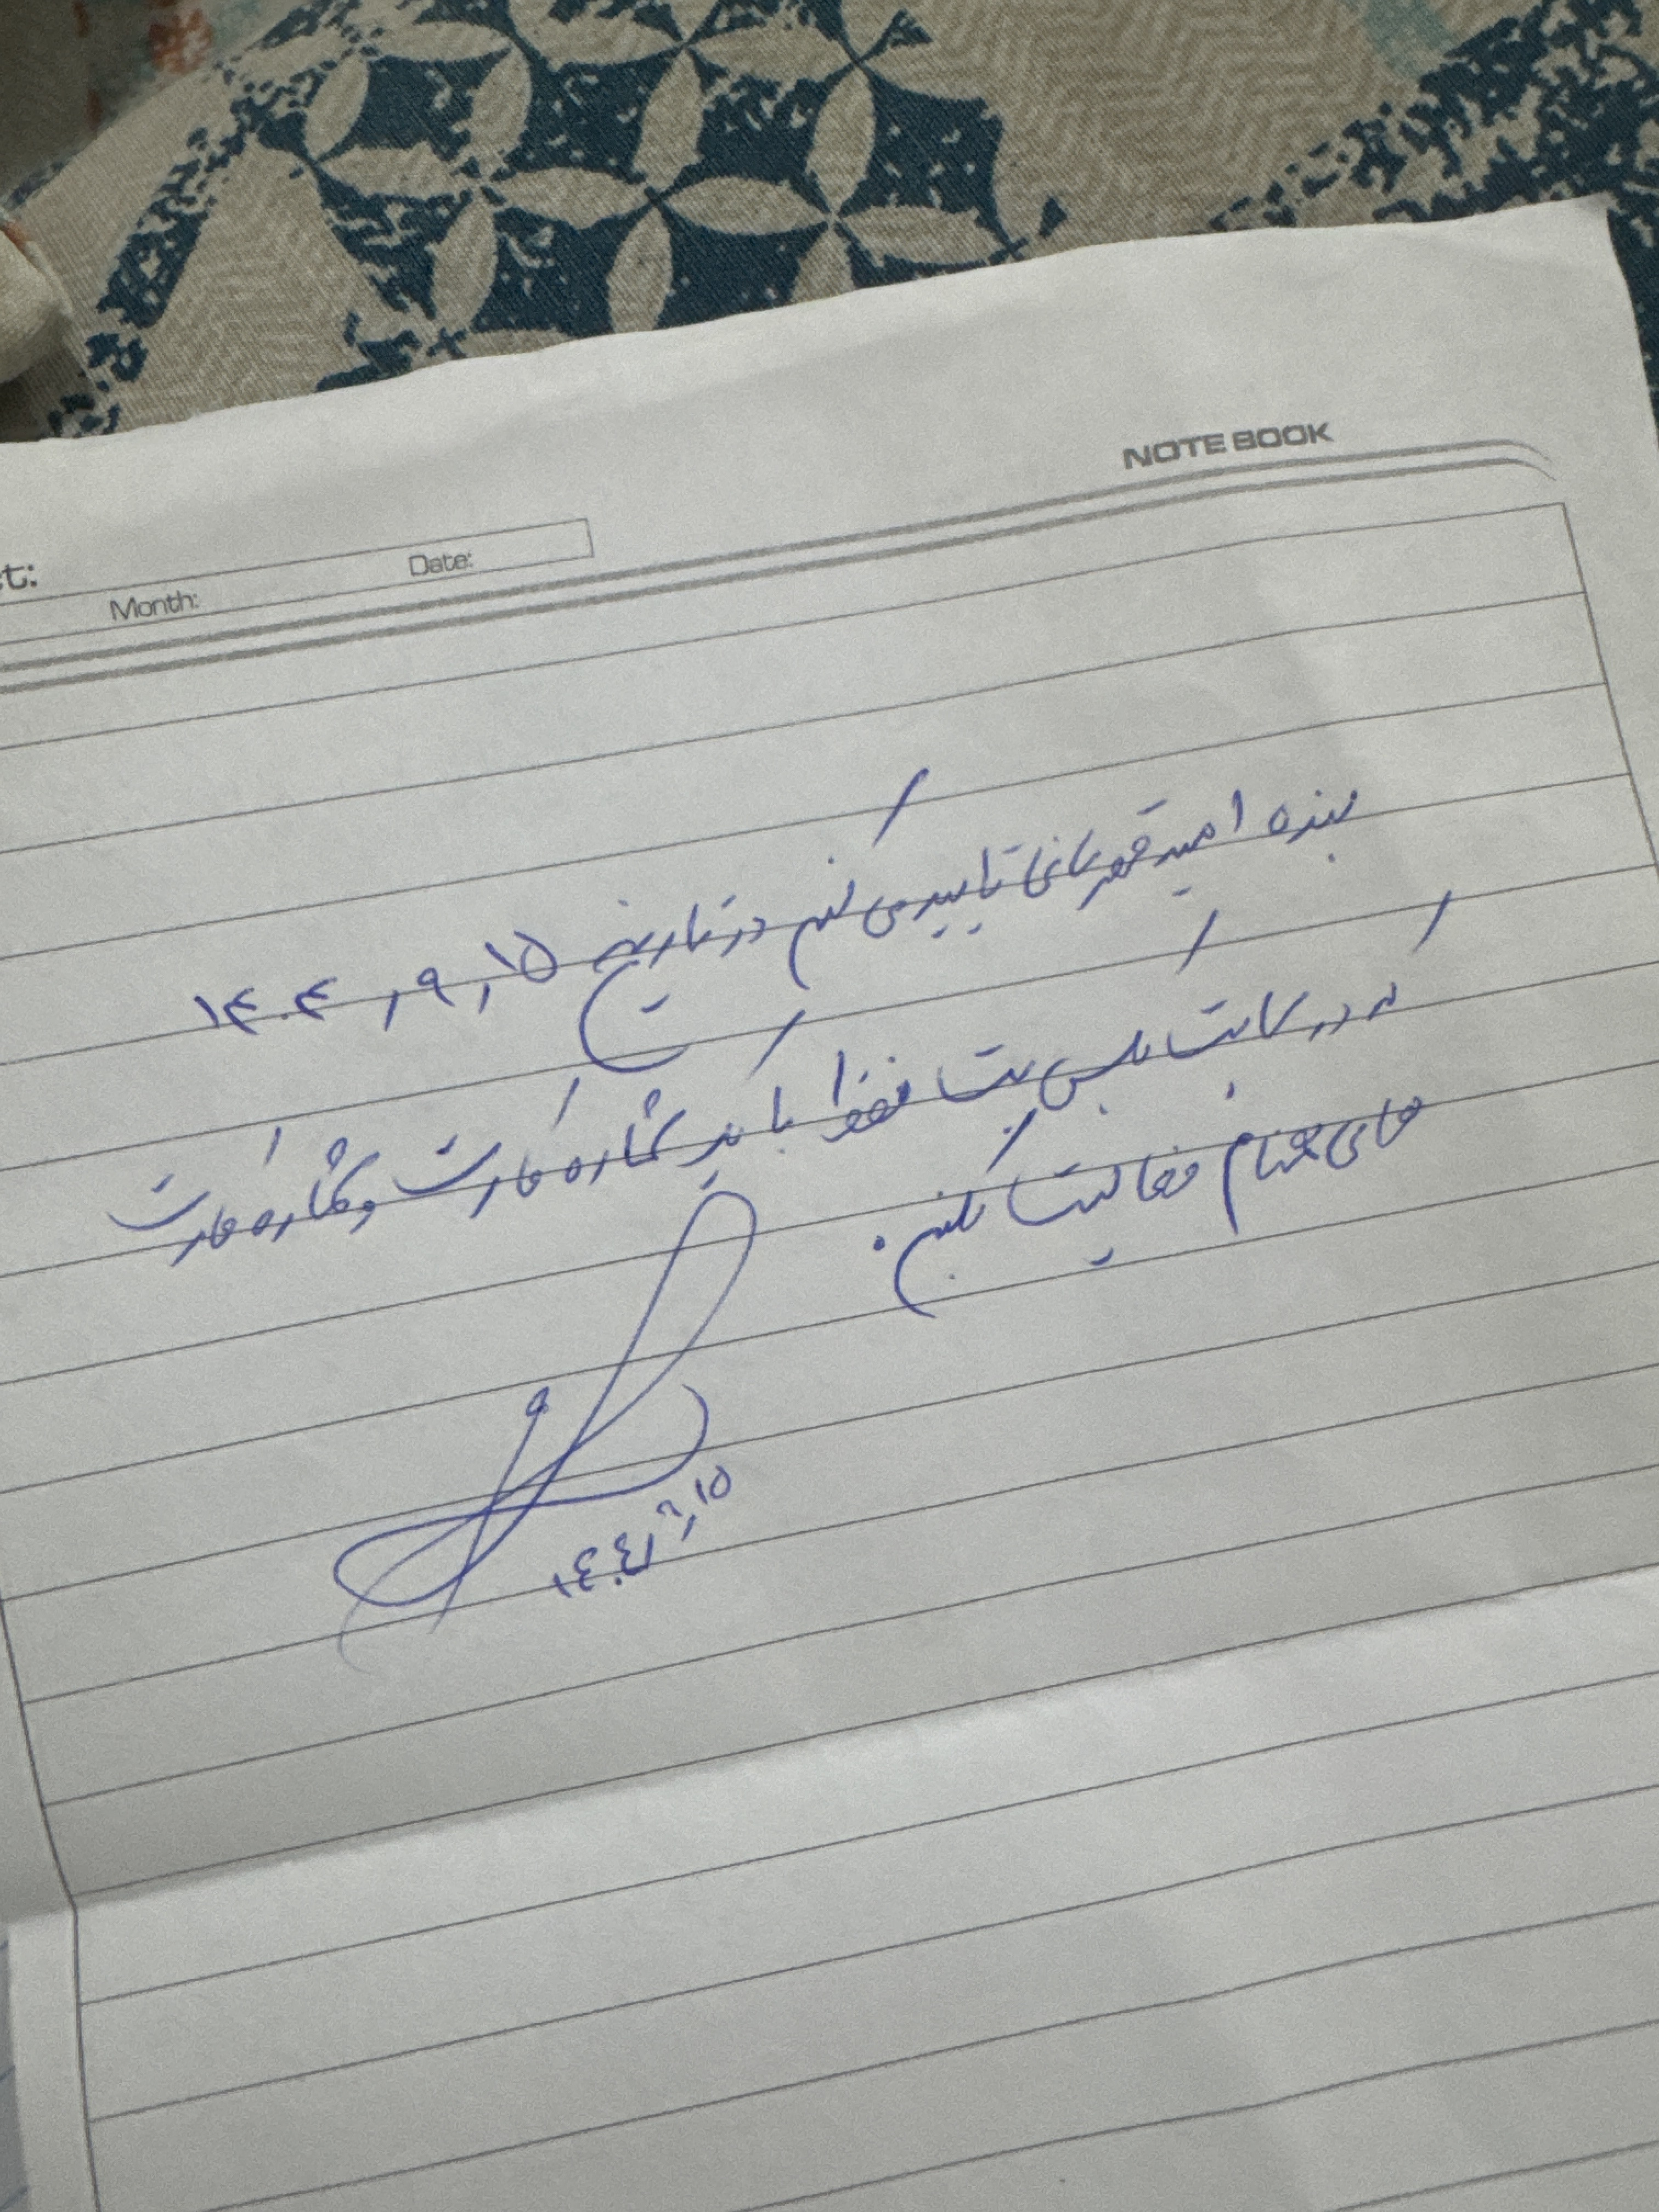 NOTE BOOK
ct:
Month: Date:
بنده امید قهرمانی تایید می کنم در تاریخ ۱۴۰۴٫۹٫۱۵
که در سایت پلس بت فقط با یک شماره کارت و شماره کارت
های همنام فعالیت کنم.
۱۴۰۴٫۹٫۱۵